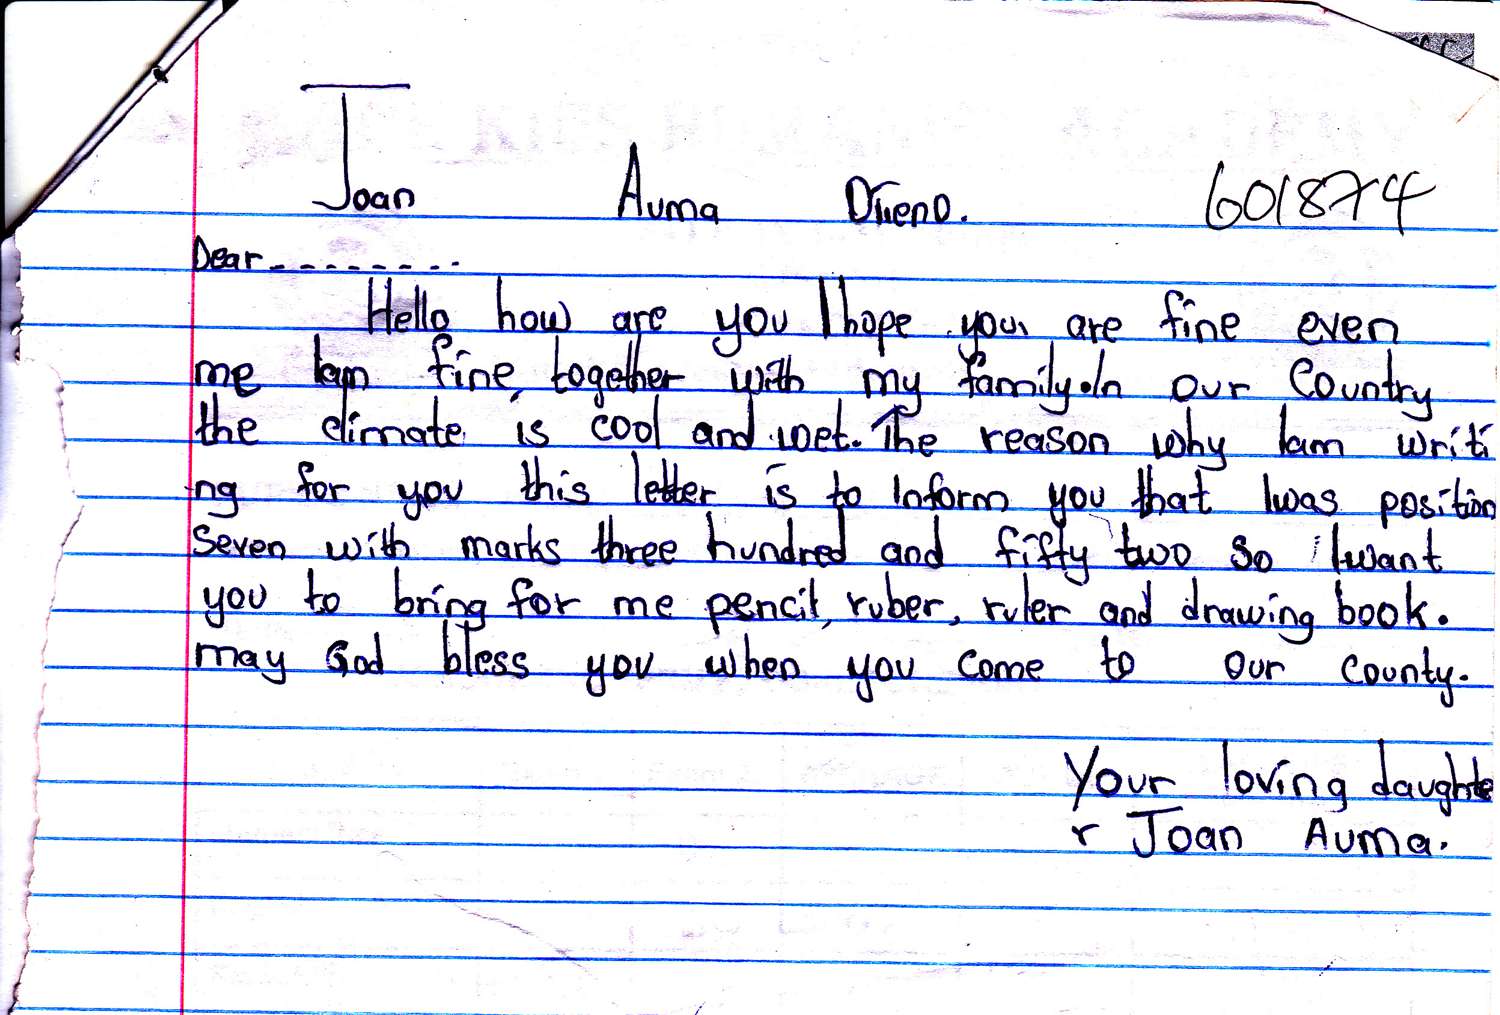 Joan Auma Otieno. 601874
Dear---------
Hello how are you I hope you are fine even
me Iam fine, together with my family.In our Country
the climate is cool and wet. The reason why Iam writi
ng for you this letter is to Inform you that Iwas position
Seven with marks three hundred and fifty two so Iwant
you to bring for me pencil, ruber, ruler and drawing book.
may God bless you when you come to our county.
Your loving daughte
r Joan Auma.